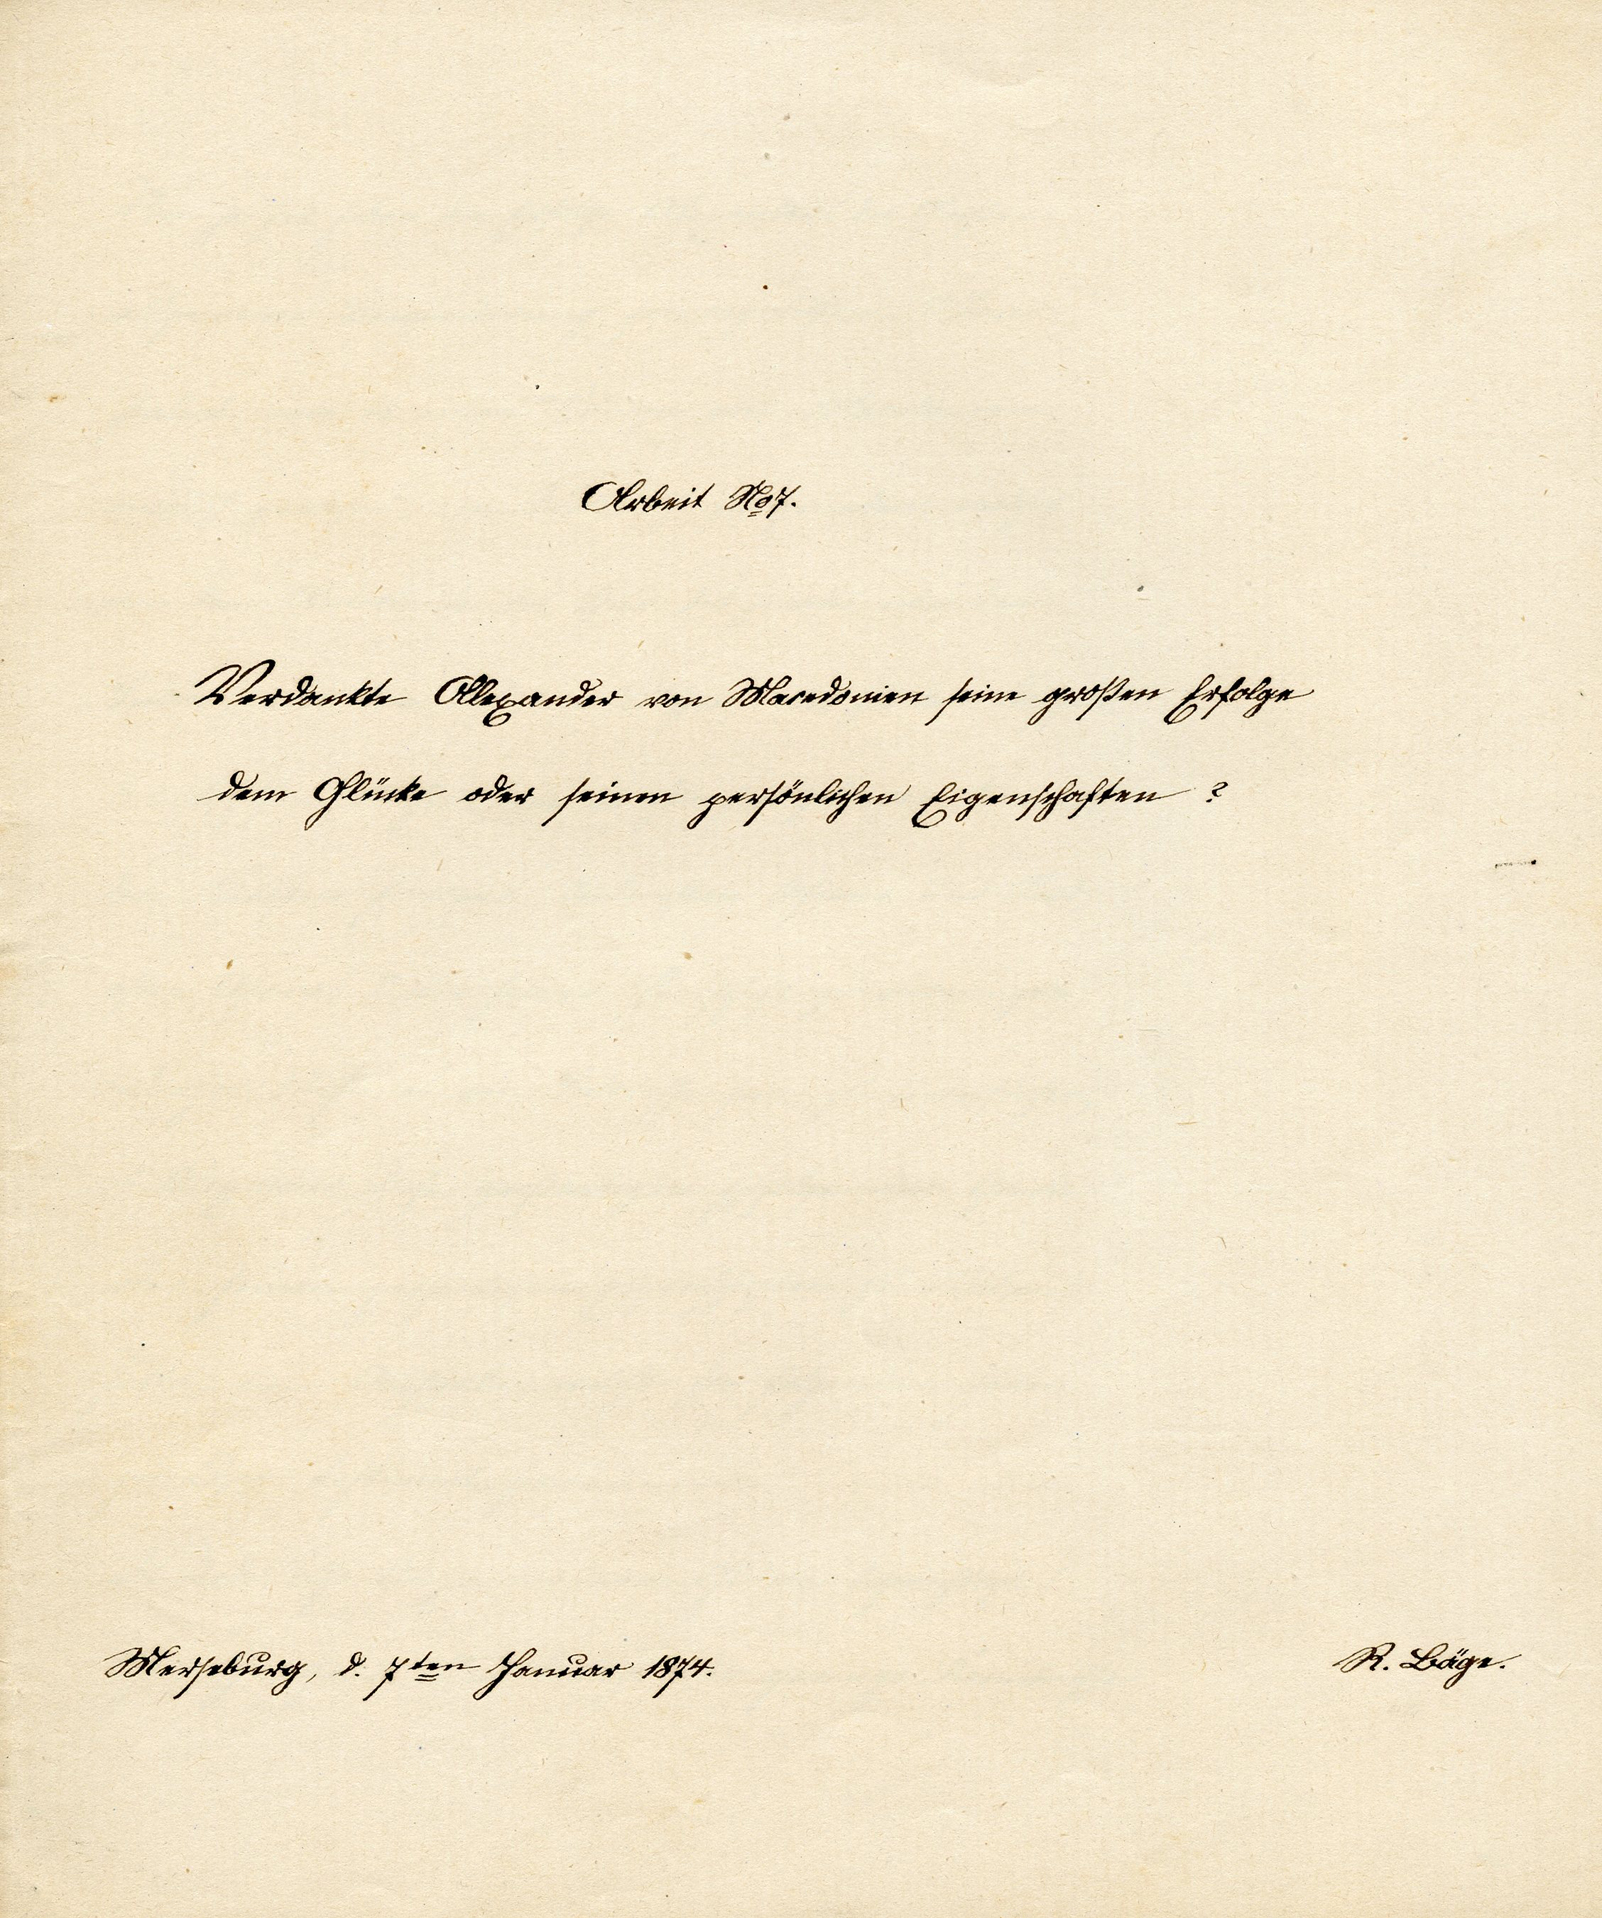 Arbeit No 7.
Verdankte Alexander von Macedonien seine großen Erfolge
dem Glücke oder seinen persönlichen Eigenschaften ?
Merseburg, d. 7ten Januar 1874.
R. Bäge.